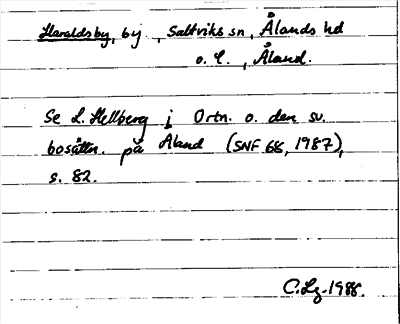 Haraldsby, by, Saltviks sn, Ålands hd
o. l., Åland.
Se L. Hellberg i Ortn. o. den sv.
bosättn. på Åland (SNF 68, 1987),
s. 82.
C.Lg. 1988.